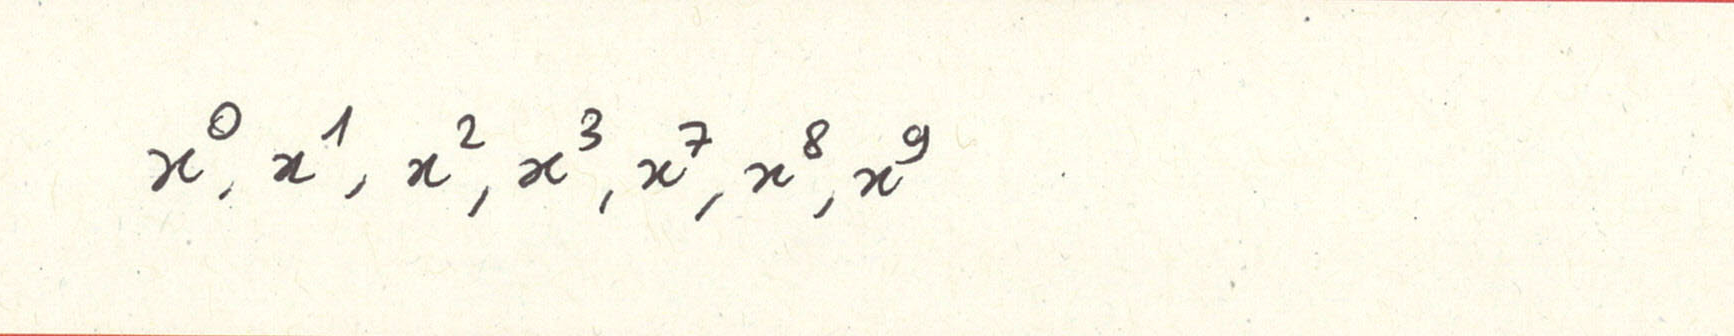 x⁰, x¹, x², x³, x⁷, x⁸, x⁹